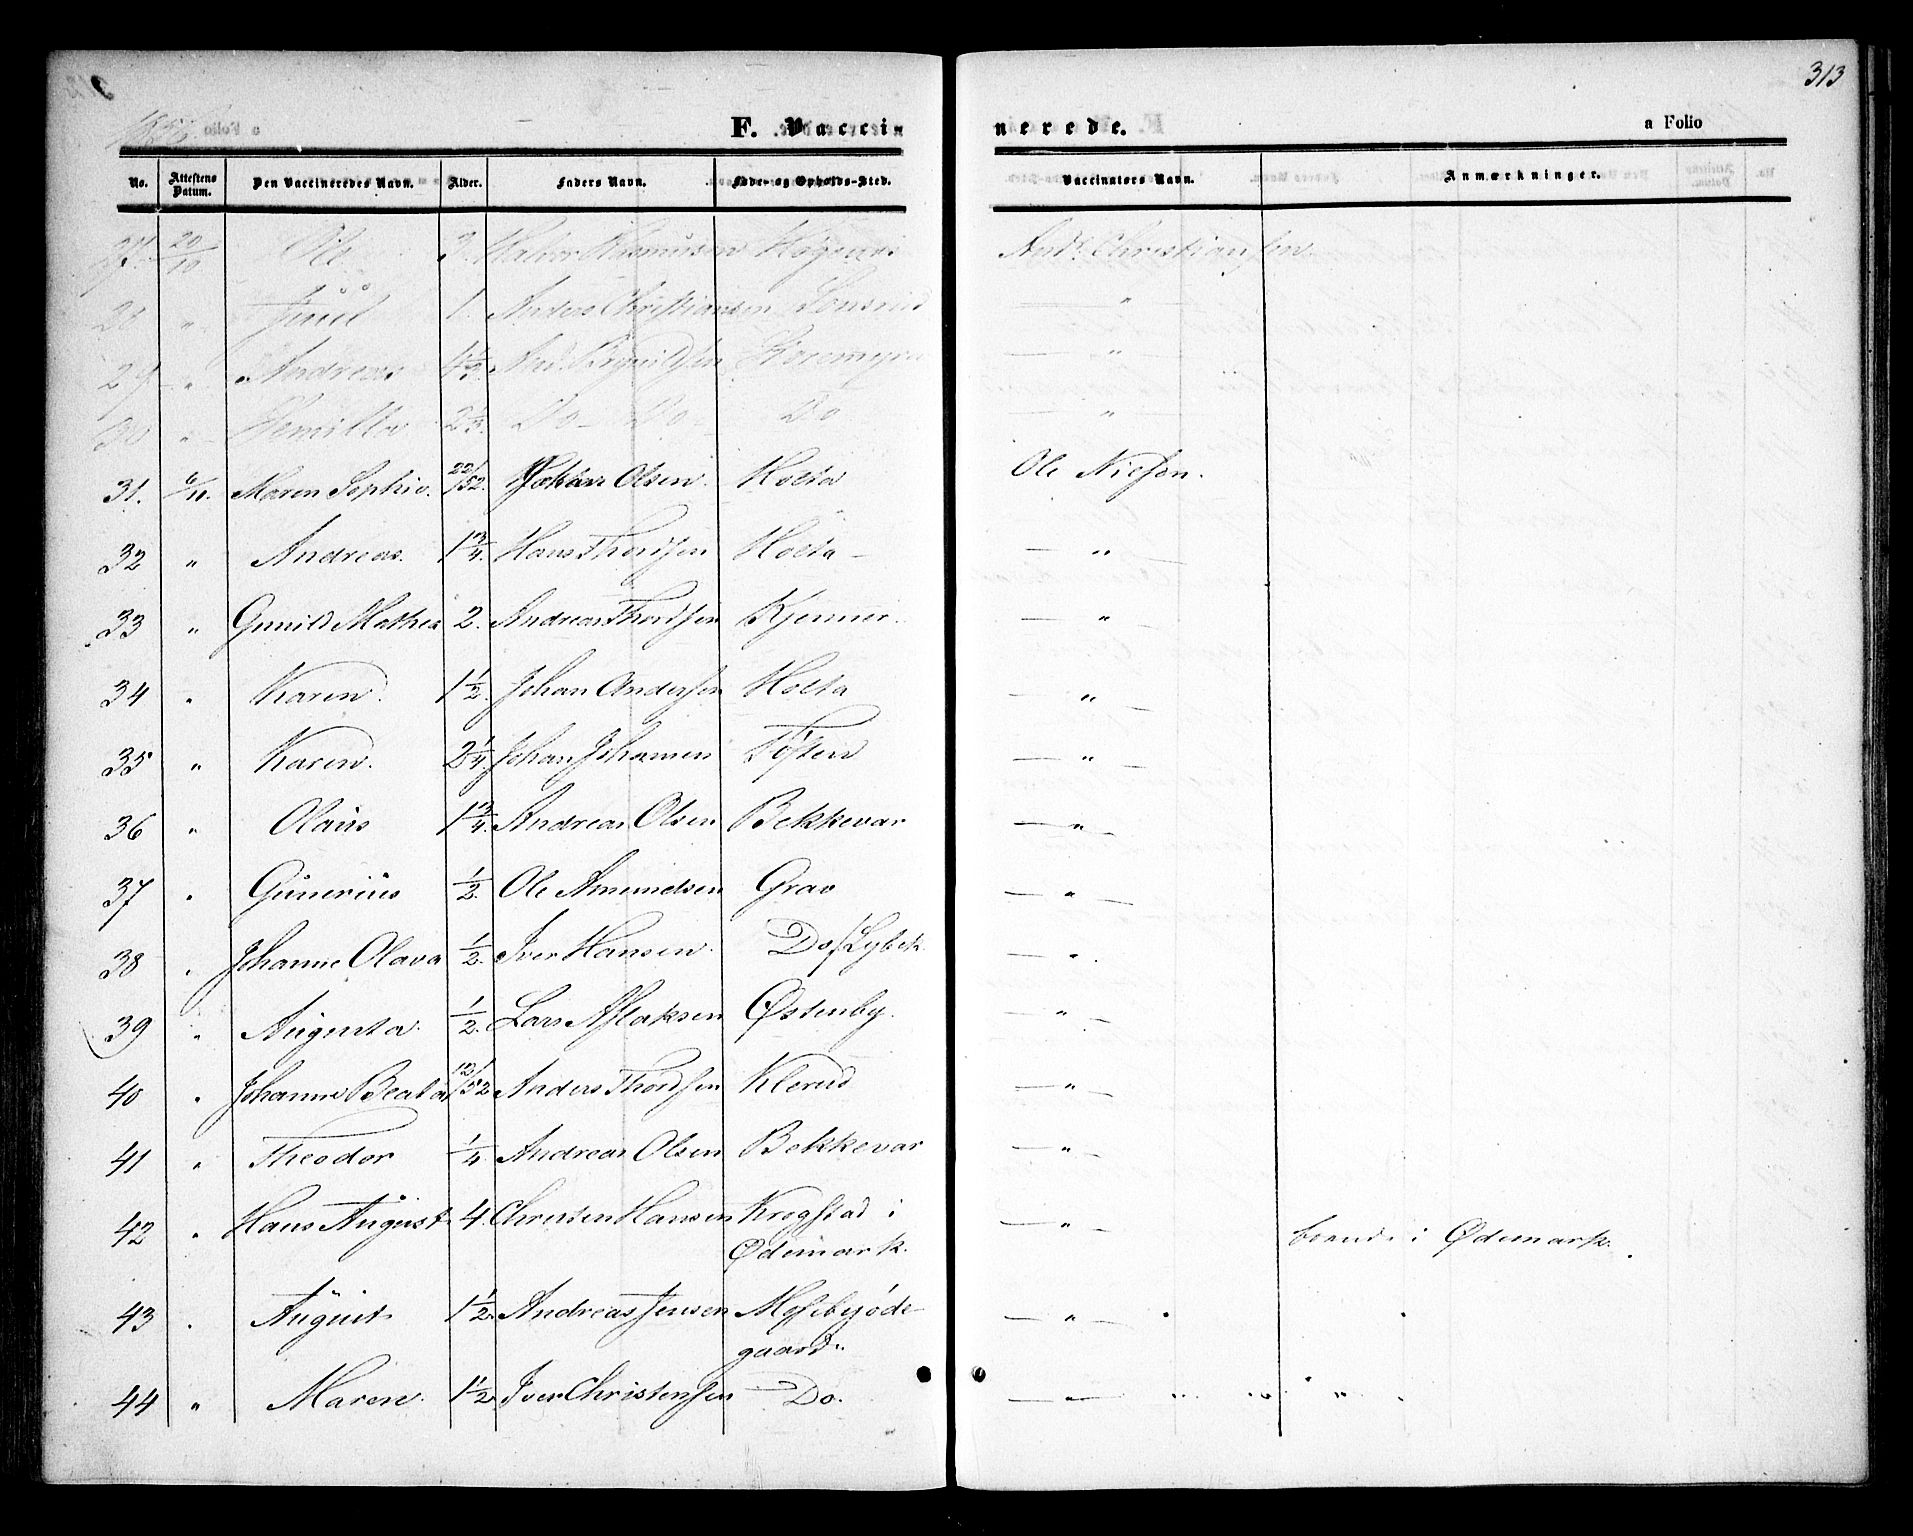 313
F. Vacci- nerede. a Folio
No. Attestens Datum. Den Vaccineredes Navn. Alder. Faders Navn. Føde- og Opholds-Sted. Vaccinators Navn. Anmærkninger.
20/10 Ole 3. Halvor Rasmusen And. Christiansen.
28 " Juul 1. Anders Christiansen "
29 " Andreas "
30 " 2 Do Do Do "
31. 6/11. Maren Sophie. 22/52. Olsen. Holta Ole Nielsen.
32 " Andreas. 1 3/4. Hans Thordsen Holta "
33 " Gunild Mathea 2. Andreas Thordsen Kjenner. "
34 " Karen. 1 1/2. Johan Andersen Holta "
35 " Karen. 2 1/4. Johan Johansen Toften "
36 " Olaus 1 3/4. Andreas Olsen Bekkevar "
37 " Gunerius 1/2. Ole Amundsen Grav "
38 " Johanne Olava 1/2. Iver Hansen. Do/Lybek "
39 " Augusta. 1/2. Lars Aslaksen Østenby. "
40 " Johanne Beata 12/52 Anders Thordsen Klerud "
41 " Theodor 1/4. Andreas Olsen Bekkevar "
42 " Hans August 4. Christen Hansen Krogstad i " boende i Ødemark.
Ødemark.
43 " August 1 1/2. Andreas Jensen Mosebyøde- "
gaard.
44 " Maren. 1 1/2 Iver Christensen Do. " " " "